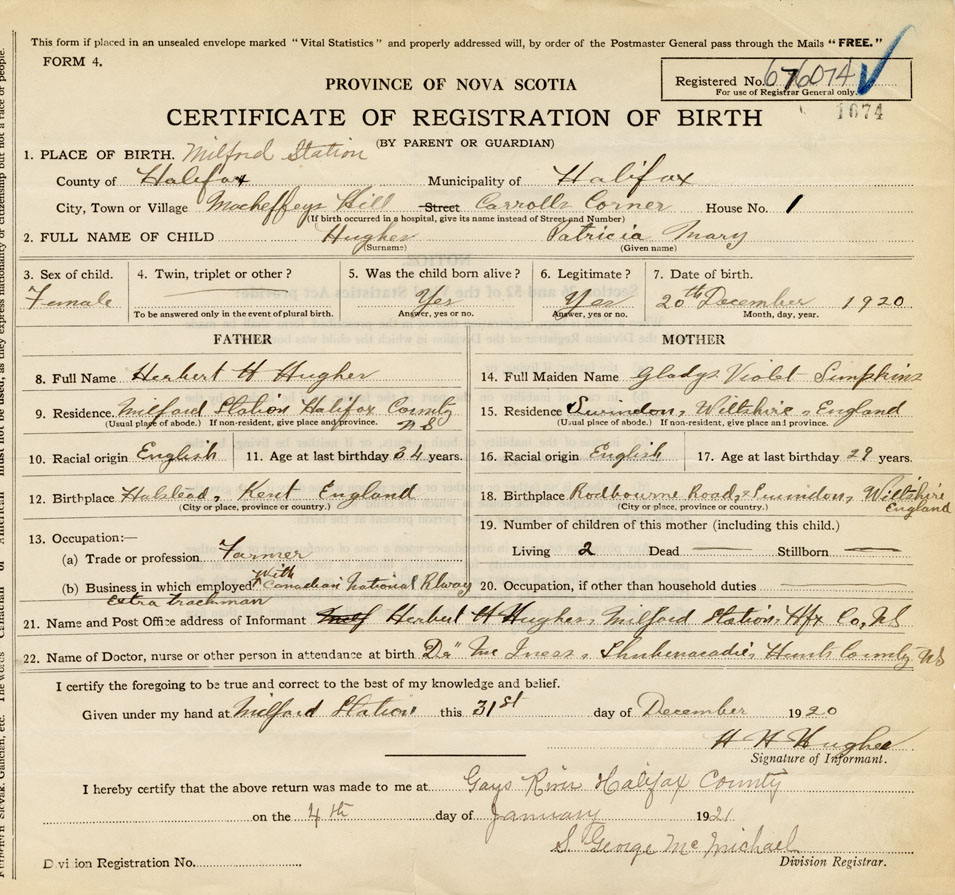 This form if placed in an unsealed envelope marked "Vital Statistics" and properly addressed will, by order of the Postmaster General pass through the Mails "FREE."
FORM 4.
PROVINCE OF NOVA SCOTIA
Registered No. 676074
For use of Registrar General only.
1674
CERTIFICATE OF REGISTRATION OF BIRTH
(BY PARENT OR GUARDIAN)
1. PLACE OF BIRTH. Milford Station
County of Halifax Municipality of Halifax
City, Town or Village Macheffeys Hill Street Carrolls Corner House No. 1
(If birth occurred in a hospital, give its name instead of Street and Number)
2. FULL NAME OF CHILD Hughes Patricia Mary
(Surname) (Given name)
3. Sex of child. 4. Twin, triplet or other? 5. Was the child born alive? 6. Legitimate? 7. Date of birth.
Female Yes Yes 20th December 1920
To be answered only in the event of plural birth. Answer, yes or no. Answer, yes or no. Month, day, year.
FATHER
8. Full Name Herbert H Hughes
9. Residence. Milford Station Halifax County
(Usual place of abode.) If non-resident, give place and province. NS
10. Racial origin English 11. Age at last birthday 34 years.
12. Birthplace Halstead, Kent England
(City or place, province or country.)
13. Occupation:—
(a) Trade or profession Farmer
(b) Business in which employed With Canadian National Rlway
extra trackman
MOTHER
14. Full Maiden Name Gladys Violet Simpkins
15. Residence Swindon, Wiltshire, England
(Usual place of abode.) If non-resident, give place and province.
16. Racial origin English 17. Age at last birthday 29 years.
18. Birthplace Rodbourne Road, Swindon, Wiltshire
(City or place, province or country.) England
19. Number of children of this mother (including this child.)
Living 2 Dead — Stillborn —
20. Occupation, if other than household duties
21. Name and Post Office address of Informant Herbert H Hughes, Milford Station, Hfx Co, NS
22. Name of Doctor, nurse or other person in attendance at birth Dr Mc Innes, Shubenacadie, Hants County NS
I certify the foregoing to be true and correct to the best of my knowledge and belief.
Given under my hand at Milford Station this 31st day of December 1920
H H Hughes
Signature of Informant.
I hereby certify that the above return was made to me at Gays River Halifax County
on the 4th day of January 1921
S George McMichael
Division Registrar.
Division Registration No.